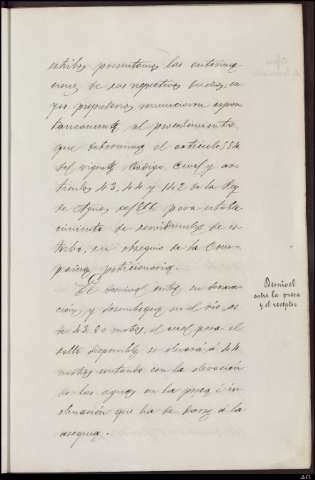 estribos presentamos las autorizaciones
de sus respectivos dueños, cuyos
propietarios renunciaron espontaneamente
al procedimiento
que determina el artículo 554
del vigente Código Civil y artículos
43, 44 y 142 de la Ley
de Aguas, para establecimiento
de servidumbre de estribo,
en obsequio de la Compañia
peticionaria.
El desnivel entre su derivación,
y desembogue en el río, es
de 43.80 metros, el cual para el
salto disponible se elevará á 44
metros contando con la elevación
de las aguas en la presa é inclinación
que ha de darse á la
acequia.
Desnivel
entre la presa
y el receptor